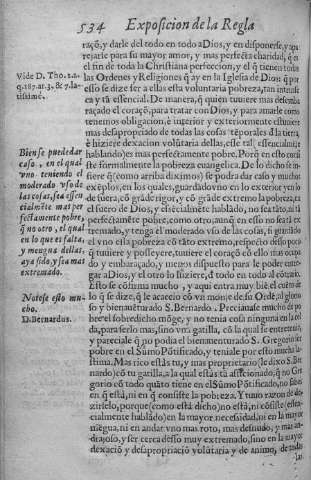 534 Exposicion de la Regla
raçõ, y darle del todo en todo a Dios, y en disponerse, y apa
rejarse para su mayor amor, y mas perfecta charidad, q̃ es
el fin de toda la Christiana perfeccion, y el q̃ tienen todas
las Ordenes y Religiones q̃ ay en la Iglesia de Dios: q̃ por
esso se dize ser a ellas esta voluntaria pobreza, tan intrinse
ca y tã essencial. De manera, q̃ quien tuuiere mas desemba
raçado el coraçõ, para tratar con Dios, y para amarle como
tenemos obligacion, è interior y exteriormente estuuiere
mas desapropriado de todas las cosas tẽporales d̃ la tierra,
è hiziere dexacion voluntaria dellas, esse tal essencialmẽte
hablando es mas perfectamẽte pobre. Porq̃ en esto consi
ste formalmente la pobreza euangelica. De lo dicho se in-
fiere q̃ (como arriba diximos) se podra dar caso y muchos
exẽplos, en los quales, guardado vno en lo exterior y en lo
de fuera, cõ grãde rigor, y cõ grãde extremo la pobreza, en
el fuero de Dios, y essecialmẽte hablãdo, no sea tãto, ni tã
perfectamẽte pobre, como otro, aunq̃ en esso no sea tã ex
tremado, y tenga el moderado vso de las cosas, si guardado
el vno esta pobreza cõ tãto extremo, respecto desso porq̃
q̃ tuuiere y posseyere, tuuiere el coraçõ cõ ello mas ocupa
do y embaraçado, y menos dispuesto para le poder entre-
gar a Dios, y el otro lo hiziere, d̃ todo en todo al cõtrario.
Esto se cõfirma mucho, y aqui entra muy biẽ el cuẽto de
lo q̃ se dize, q̃ le acaecio cõ vn monje de su Ordẽ, al glorio
so y bienauẽturado S. Bernardo. Preciauase mucho de po
bre el sobredicho mõge, y no tenia cosa ninguna en la cel
da, para serlo mas, sino vna gatilla, cõ la qual se entretenia,
y pareciale q̃ no podia el bienauenturado S. Gregorio ser
pobre en el Sũmo Põtificado, y teniale por esso mucha la-
stima. Mas rico estàs tu, y mas proprietario (le dixo S. Ber
nardo) cõ tu gatilla, a la qual estàs tã aficionado, q̃ no Gre
gorio cõ todo quãto tiene en el Sũmo Põtificado, no sabes
en q̃ està, ni en q̃ consiste la pobreza. Y tuuo razon de de
zirselo, porque (como està dicho) no està, ni cõsiste (essen-
cialmente hablãdo) en la mayor necessidad, ni en la mayor
mẽgua, ni en andar vno mas roto, mas desnudo, y mas an-
drajoso, y ser cerca desso muy extremado, sino en la mayor
dexaciõ y desapropriaciõ voluntaria y de animo, de todas
las
Vide D. Tho. 2.2.
q. 187. ar. 3. & 7. la-
tissimè.
Bien se puede dar
caso, en el qual
vno teniendo el
moderado vso de
las cosas, sea essen
cialmẽte mas per
fectamente pobre,
q̃ no otro, el qual
en lo que es falta,
y mengua dellas,
aya sido, y sea mas
extremado.
Notese esto mu-
cho.
D. Bernardus.